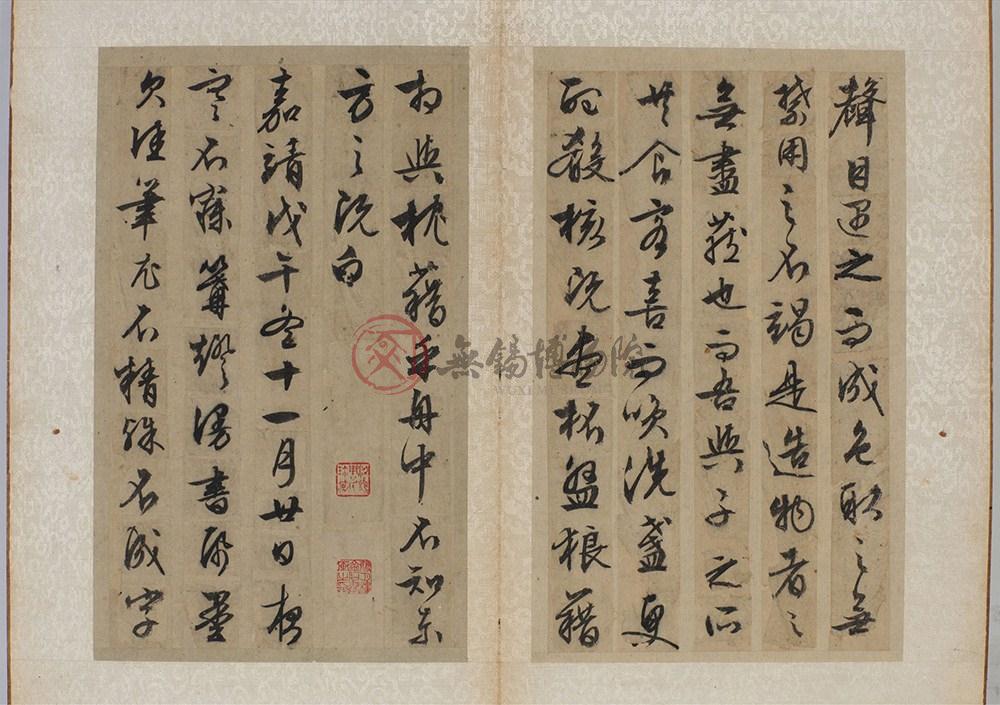 聲目遇之而成色取之無
禁用之不竭是造物者之
無盡藏也而吾與子之所
共食客喜而笑洗盞更
酌殽核既盡杯盤狼藉
相與枕藉乎舟中不知東
方之既白
嘉靖戊午冬十一月廿日極
寒不寐篝燈漫書紙墨
欠佳筆尤不精殊不成字
無錫博物院